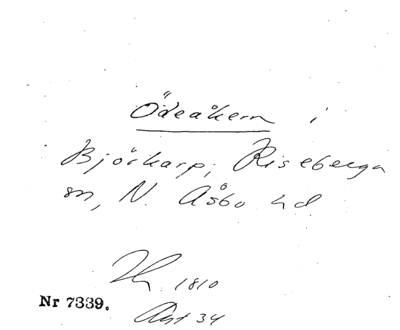 Ödeåkern i
Björkarp, Riseberga
sn, N. Åsbo hd
1810
Nr 7339.
Akt 34